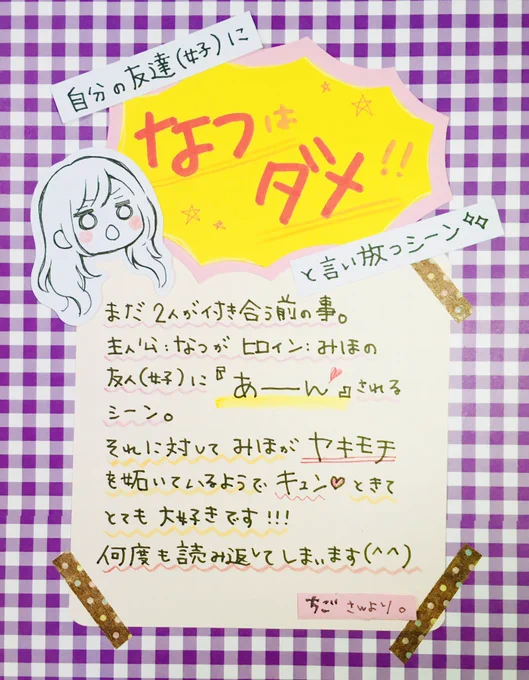 自分の友達(女子)に
なつは
ダメ!!
と言い放つシーン
まだ2人が付き合う前の事。
主人公:なつが ヒロイン:みほの
友人(女子)に『あーーん♥』される
シーン。
それに対して みほが ヤキモチ
を妬いているようで キュン♥ときて
とても大好きです!!!
何度も読み返してしまいます(^^)
ちご さんより。